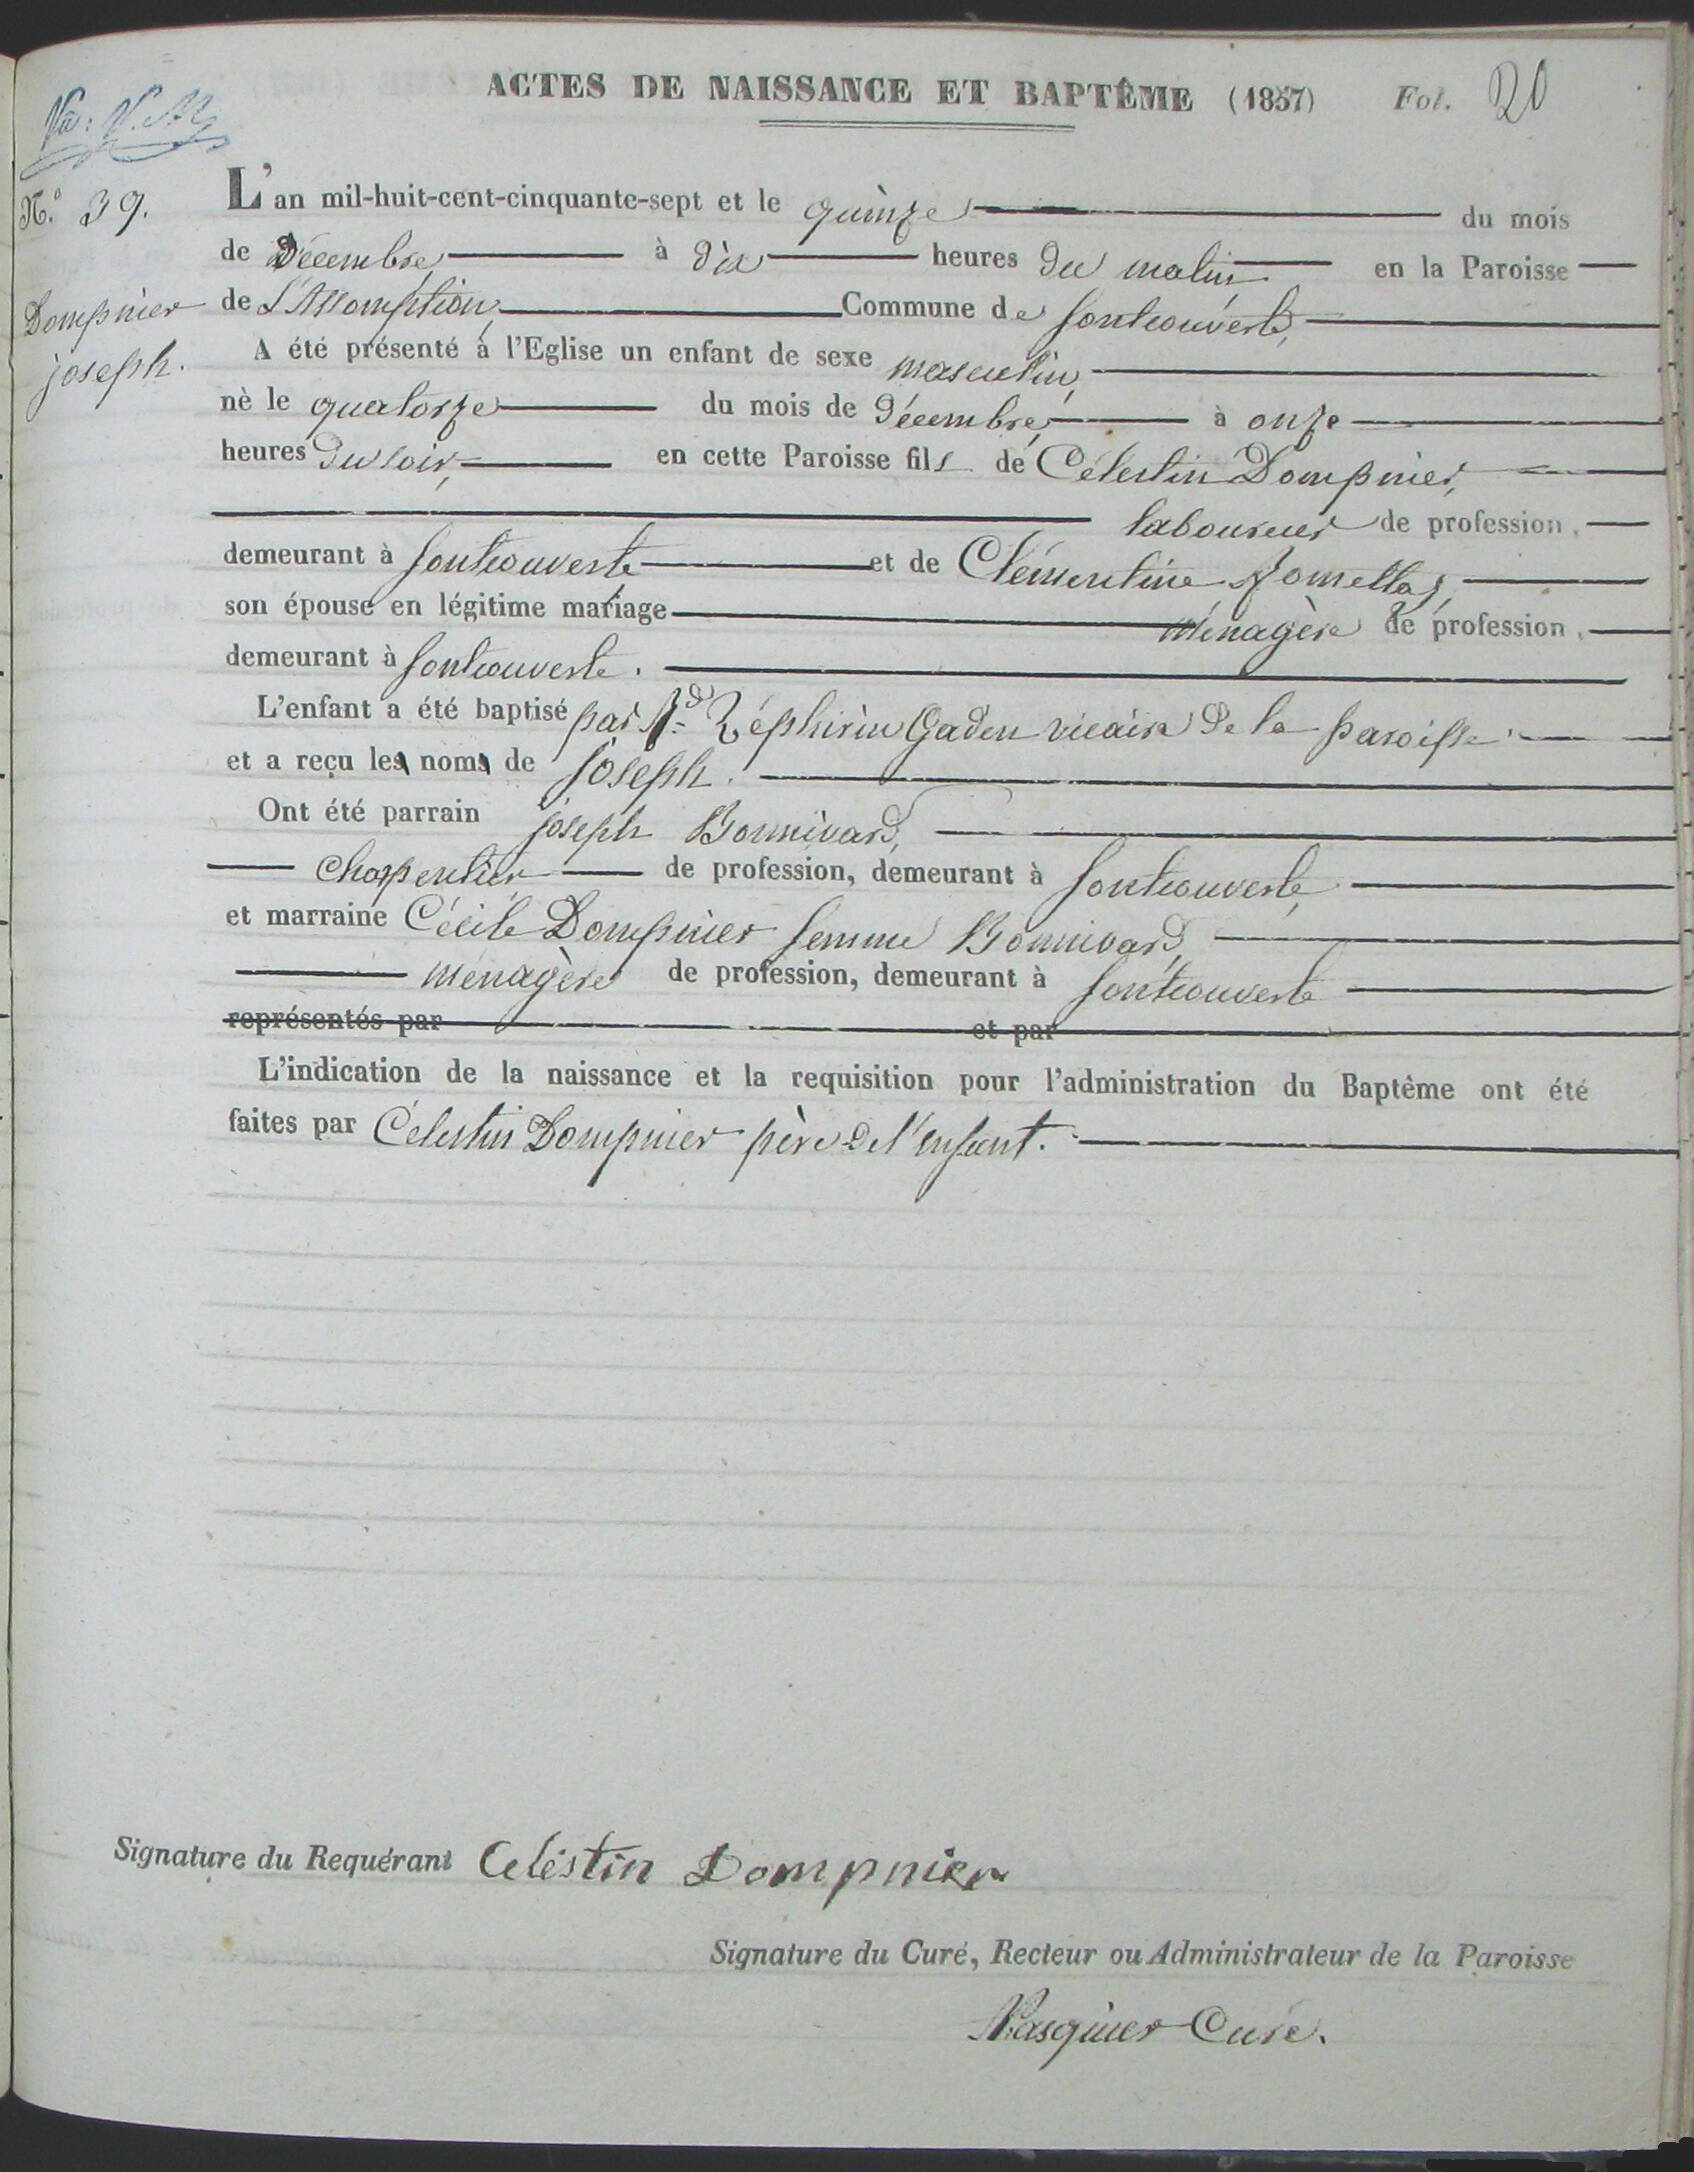 ACTES DE NAISSANCE ET BAPTÊME (1857) Fol. 20
N.o 39.
Dompnier
joseph.
L'an mil-huit-cent-cinquante-sept et le quinze du mois
de Décembre, à dix heures du matin en la Paroisse
de L'Assomption, Commune de fontcouverte,
A été présenté à l'Eglise un enfant de sexe masculin,
nè le quatorze du mois de Décembre, à onze
heures du soir, en cette Paroisse fils de Célestin Dompnier,
laboureur de profession,
demeurant à fontcouverte et de Clémentine
son épouse en légitime mariage ménagère de profession,
demeurant à fontcouverte.
L'enfant a été baptisé par Rd Zéphirin Gaden vicaire de la paroisse
et a reçu les noms de joseph.
Ont été parrain joseph Bonnivard,
charpentier de profession, demeurant à fontcouverte,
et marraine Cécile Dompnier femme Bonnivard,
ménagère de profession, demeurant à fontcouverte
représentés par et par
L'indication de la naissance et la requisition pour l'administration du Baptême ont été
faites par Célestin Dompnier père de l'enfant.
Signature du Requérant Celéstin Dompnier
Signature du Curé, Recteur ou Administrateur de la Paroisse
Curé.